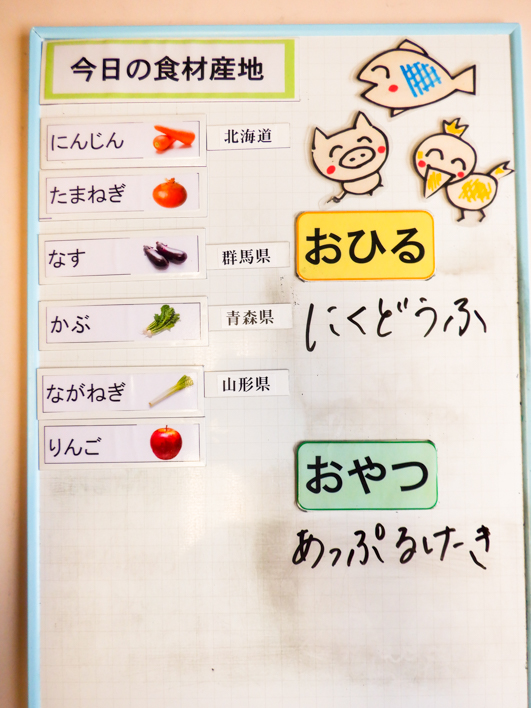 今日の食材産地
にんじん 北海道
たまねぎ
なす 群馬県
かぶ 青森県
ながねぎ 山形県
りんご
おひる
にくどうふ
おやつ
あっぷるけーき